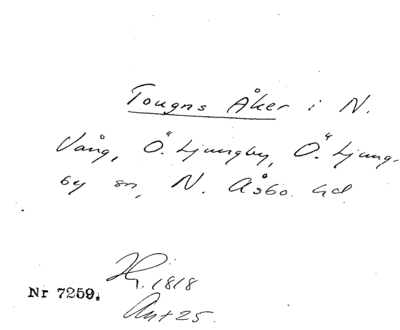 Tougns Åker i N.
Vång, Ö. Ljungby, Ö. Ljung-
by sn, N. Åsbo hd
1818
Nr 7259.
Ant 25.